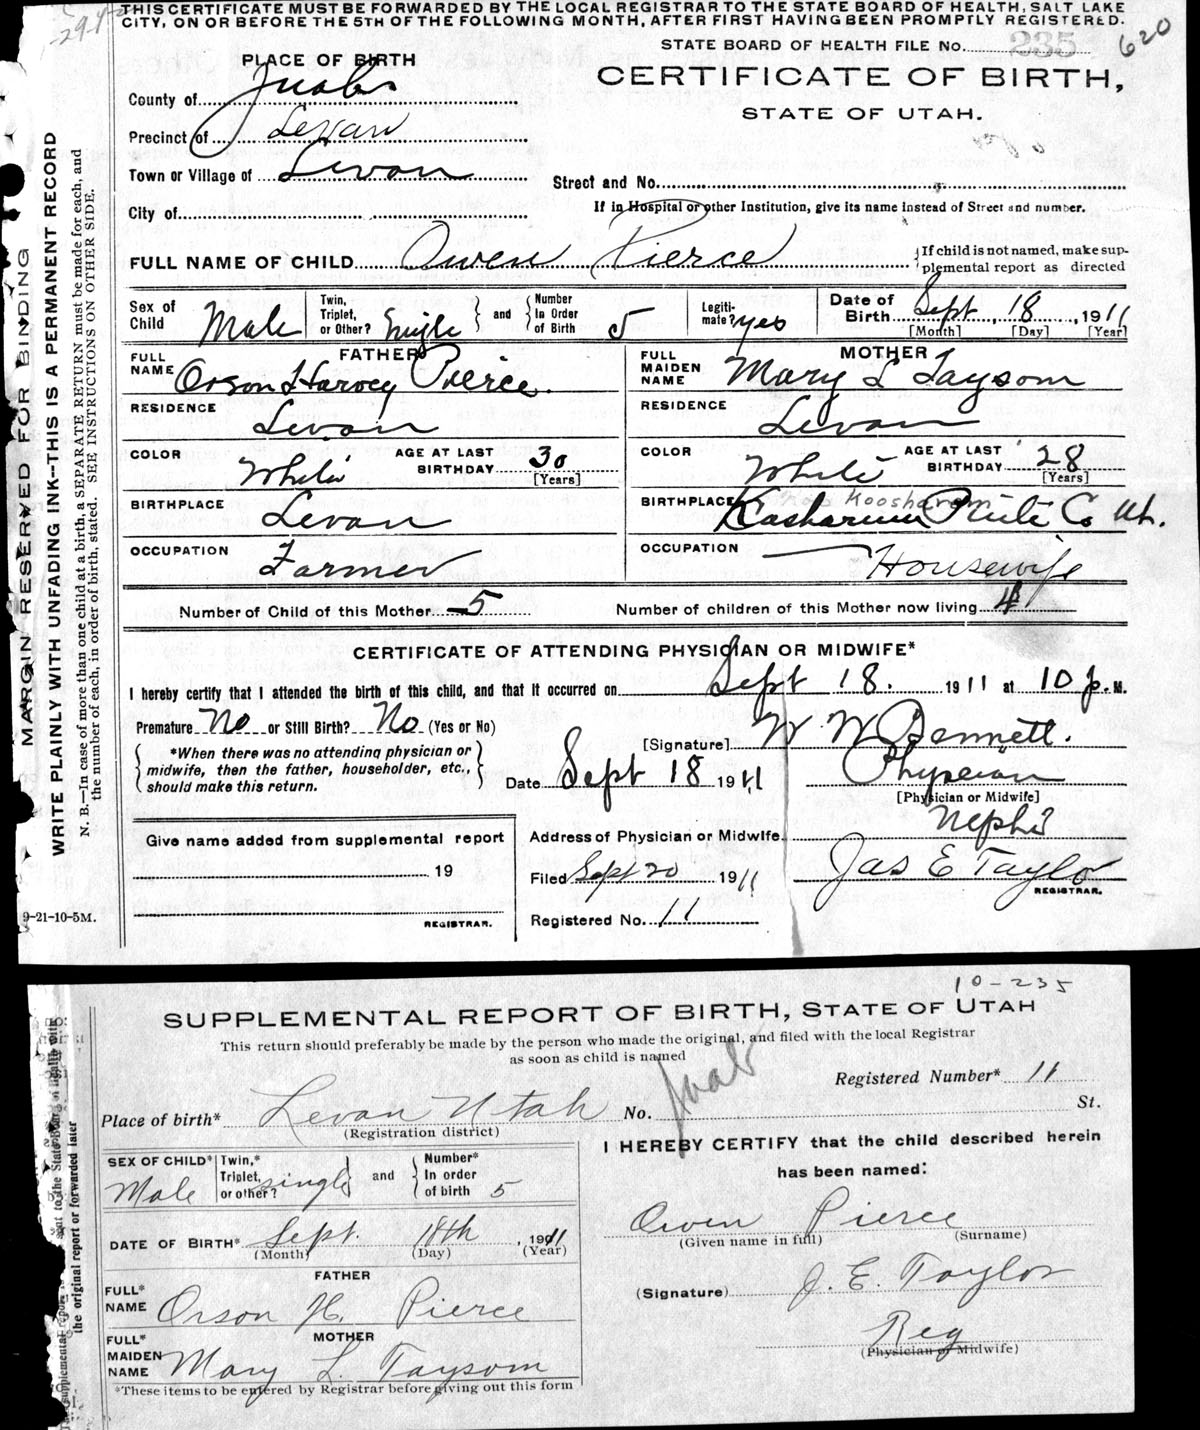 THIS CERTIFICATE MUST BE FORWARDED BY THE LOCAL REGISTRAR TO THE STATE BOARD OF HEALTH, SALT LAKE
CITY, ON OR BEFORE THE 5TH OF THE FOLLOWING MONTH, AFTER FIRST HAVING BEEN PROMPTLY REGISTERED.
STATE BOARD OF HEALTH FILE No. 235 620
PLACE OF BIRTH
CERTIFICATE OF BIRTH,
STATE OF UTAH.
County of Juab
Precinct of Levan
Town or Village of Levan
Street and No.
City of
If in Hospital or other Institution, give its name instead of Street and number.
FULL NAME OF CHILD Owen Pierce {If child is not named, make supplemental report as directed
Sex of Child Male Twin, Triplet, or Other? Single and Number In Order of Birth 5 Legitimate? yes Date of Birth Sept 18, 1911
[Month] [Day] [Year]
FATHER
FULL NAME Orson Harvey Pierce.
RESIDENCE Levan
COLOR White AGE AT LAST BIRTHDAY 30 [Years]
BIRTHPLACE Levan
OCCUPATION Farmer
MOTHER
FULL MAIDEN NAME Mary L Taysom
RESIDENCE Levan
COLOR White AGE AT LAST BIRTHDAY 28 [Years]
BIRTHPLACE Koosharem
Kasharum Piute Co Ut.
OCCUPATION Housewife
Number of Child of this Mother 5 Number of children of this Mother now living 4
CERTIFICATE OF ATTENDING PHYSICIAN OR MIDWIFE*
I hereby certify that I attended the birth of this child, and that it occurred on Sept 18. 1911 at 10 p. M.
Premature No or Still Birth? No (Yes or No)
{*When there was no attending physician or midwife, then the father, householder, etc., should make this return.}
[Signature] W W Bennett.
Date Sept 18 1911 Physcian
[Physician or Midwife]
Address of Physician or Midwife. Nephi
Filed Sept 20 1911 Jas E Taylor
REGISTRAR.
Registered No. 11
Give name added from supplemental report
19
REGISTRAR.
9-21-10-5M.
MARGIN RESERVED FOR BINDING
WRITE PLAINLY WITH UNFADING INK--THIS IS A PERMANENT RECORD
N. B.—In case of more than one child at a birth, a SEPARATE RETURN must be made for each, and
the number of each, in order of birth, stated. SEE INSTRUCTIONS ON OTHER SIDE.
10-235
SUPPLEMENTAL REPORT OF BIRTH, STATE OF UTAH
This return should preferably be made by the person who made the original, and filed with the local Registrar
as soon as child is named
Juab
Registered Number* 11
Place of birth* Levan Utah No. St.
(Registration district)
SEX OF CHILD* Male Twin,* Triplet, or other? single and Number* In order of birth 5
DATE OF BIRTH* Sept. 18th, 1911
(Month) (Day) (Year)
FATHER
FULL* NAME Orson H. Pierce
MOTHER
FULL* MAIDEN NAME Mary L. Taysom
*These items to be entered by Registrar before giving out this form
I HEREBY CERTIFY that the child described herein
has been named:
Owen Pierce
(Given name in full) (Surname)
(Signature) J. E. Taylor
Reg
(Physician or Midwife)
the original report or forwarded later